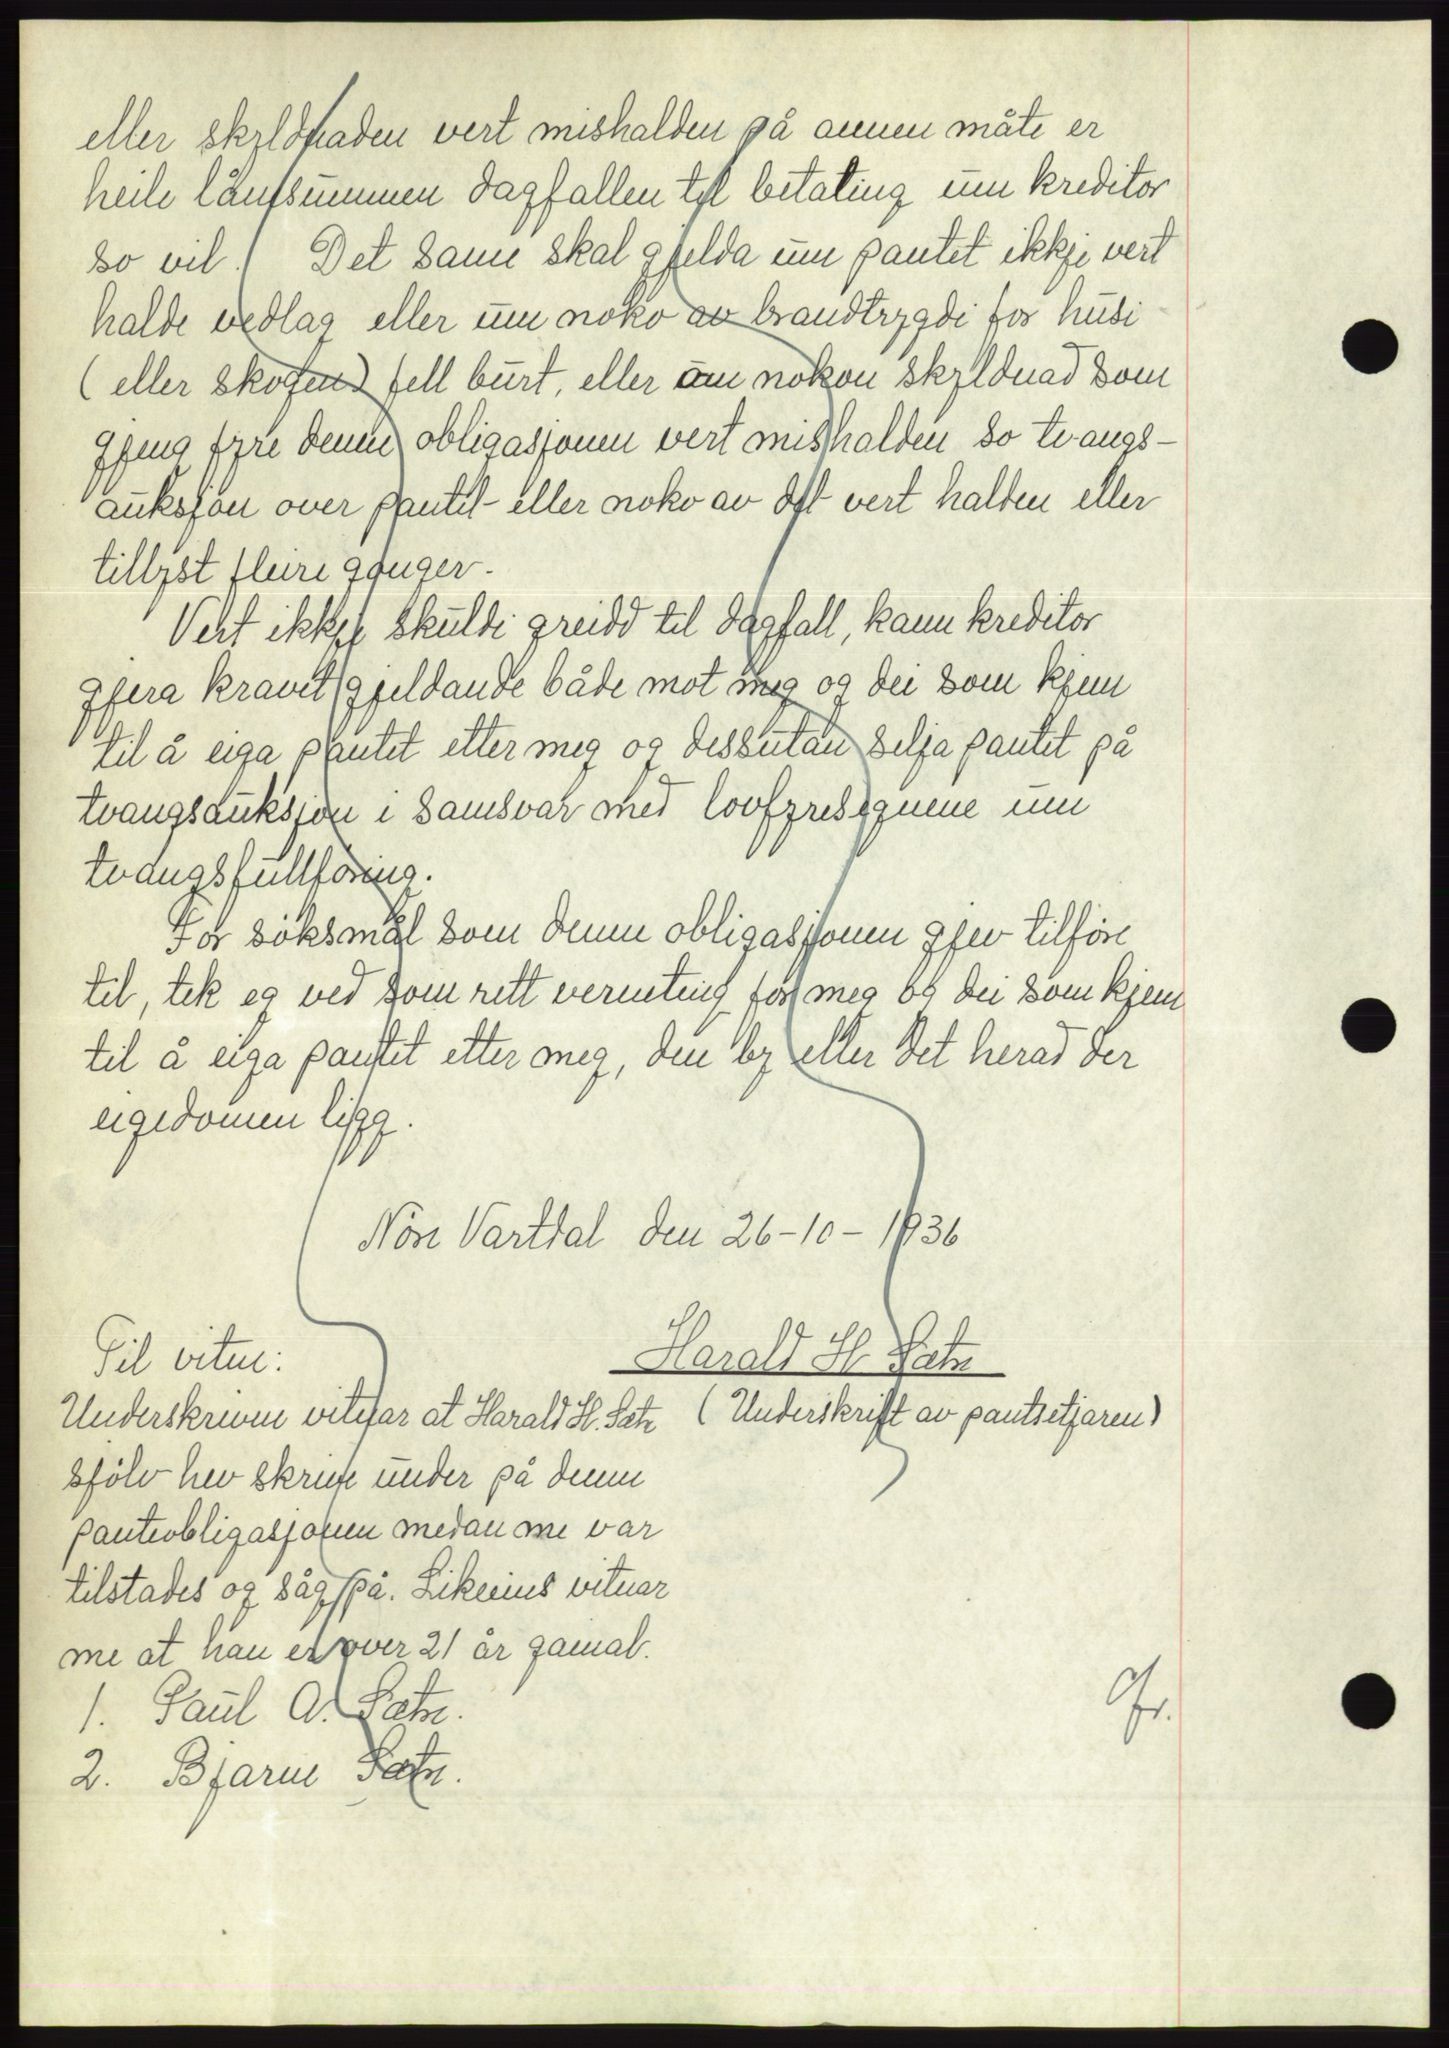 eller skyldnaden vert mishalden på annen måte er
heile lånesummen dagfallen til betaling um kreditor
so vil. Det same skal gjelda um pantet ikkje vert
halde vedlag eller um noko av brandtrygdi for husi
(eller skogen) fell burt, eller um nokon skyldnad som
gjeng fyre denne obligasjonen vert mishalden so tvangs-
auksjon over pantet eller noko av det vert halden eller
tillyst fleire gonger.
Vert ikkje skuldi greidd til dagfall, kann kreditor
gjera kravet gjeldande både mot meg og dei som kjem
til å eiga pantet etter meg og dessutan selja pantet på
tvangsauksjon i samsvar med lovfyresegnene um
tvangsfullføring.
For söksmål som denne obligasjonen gjev tilföre
til, tek eg ved som rett verneting for meg og dei som kjem
til å eiga pantet etter meg, den by eller det herad der
eigedomen ligg.
Nöre Vartdal den 26-10-1936
Til vitne: Harald H. Sætre
Underskrivne vitnar at Harald H. Sætre (Underskrift av pantsetjaren)
sjölv hev skrive under på denne
panteobligasjonen medan me var
tilstades og såg på. Likeeins vitnar
me at han er over 21 år gamal.
1. Paul A. Sætre.
2. Bjarne Sætre.